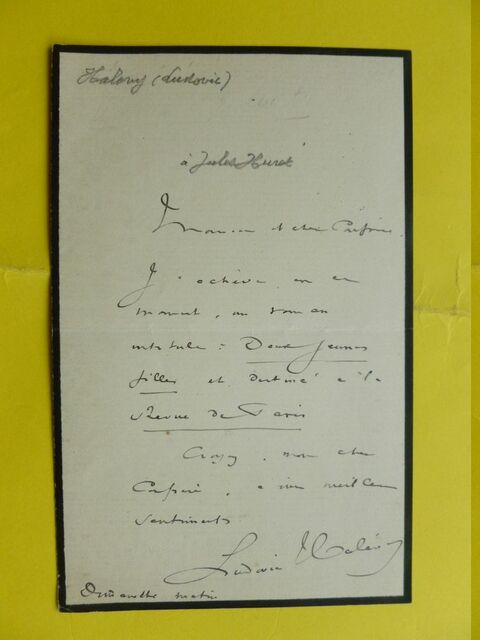 Halévy (Ludovic)
à Jules Huret
Monsieur et cher Confrère,
J'achève, en ce
moment, un roman
intitulé : Deux jeunes
filles et destiné à la
Revue de Paris
Croyez, mon cher
Confrère, à mes meilleurs
sentiments
Ludovic Halévy
Dimanche matin